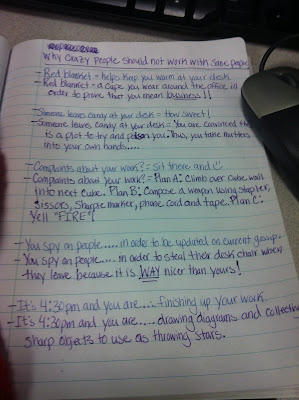 Why Crazy People should not work with Sane people
- Red blanket = helps keep you warm at your desk
- Red blanket = a cape you wear around the office in
order to prove that you mean business!!
- Someone leaves candy at your desk = How sweet!
- Someone leaves candy at your desk = You are convinced this
is a plot to try and poison you. Thus, you take matters
into your own hands....
- Complaints about your work? = Sit there and
- Complaints about your work? = Plan A: Climb over cube wall
into next cube. Plan B: Compose a weapon using stapler,
scissors, Sharpe marker, phone cord and tape. Plan C:
Yell "FIRE"!
- You spy on people.... in order to be updated on current gossip..
- You spy on people.... in order to steal their desk chair when
they leave because it is WAY nicer than yours!
- It's 4:30pm and you are.... finishing up your work.
- It's 4:30pm and you are..... drawing diagrams and collecting
sharp objects to use as throwing stars.